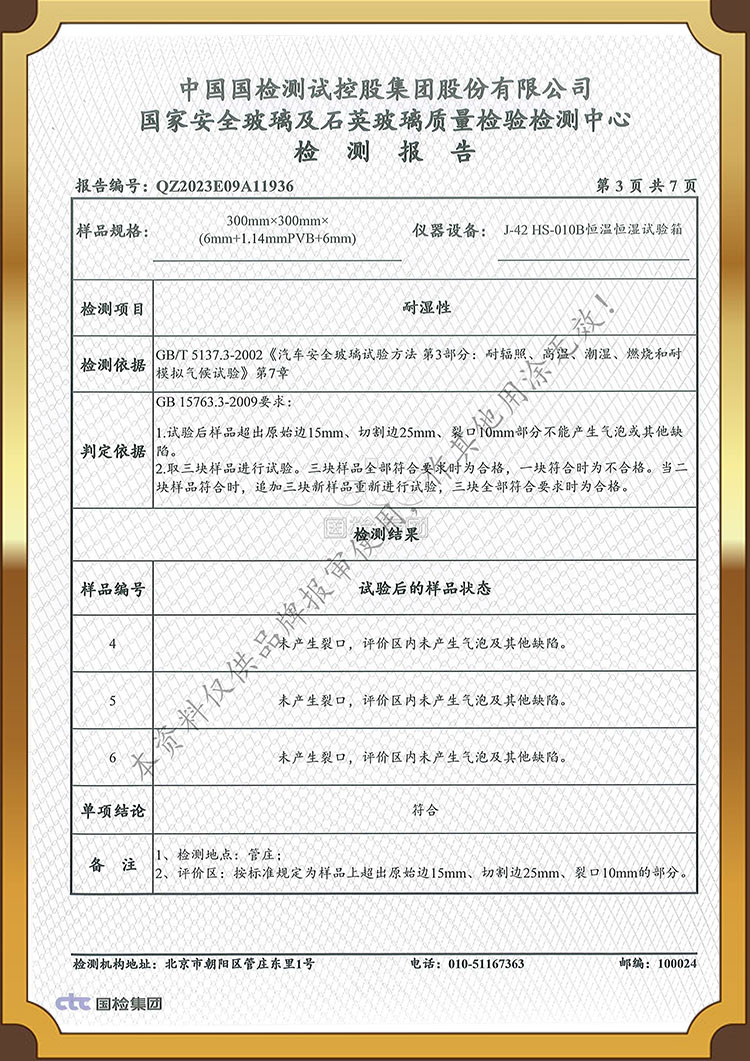 中国国检测试控股集团股份有限公司
国家安全玻璃及石英玻璃质量检验检测中心
检 测 报 告
报告编号：QZ2023E09A11936
第 3 页 共 7 页
样品规格：
300mm×300mm×
(6mm+1.14mmPVB+6mm)
仪器设备：
J-42 HS-010B恒温恒湿试验箱
检测项目
耐湿性
检测依据
GB/T 5137.3-2002《汽车安全玻璃试验方法 第3部分：耐辐照、高温、潮湿、燃烧和耐
模拟气候试验》第7章
判定依据
GB 15763.3-2009要求：
1.试验后样品超出原始边15mm、切割边25mm、裂口10mm部分不能产生气泡或其他缺
陷。
2.取三块样品进行试验。三块样品全部符合要求时为合格，一块符合时为不合格。当二
块样品符合时，追加三块新样品重新进行试验，三块全部符合要求时为合格。
国检集团
检测结果
样品编号
试验后的样品状态
4
未产生裂口，评价区内未产生气泡及其他缺陷。
5
未产生裂口，评价区内未产生气泡及其他缺陷。
6
未产生裂口，评价区内未产生气泡及其他缺陷。
单项结论
符合
备 注
1、检测地点：管庄；
2、评价区：按标准规定为样品上超出原始边15mm、切割边25mm、裂口10mm的部分。
本资料仅供品牌报审使用，作其他用途无效！
检测机构地址：北京市朝阳区管庄东里1号
电话：010-51167363
邮编：100024
ctc 国检集团